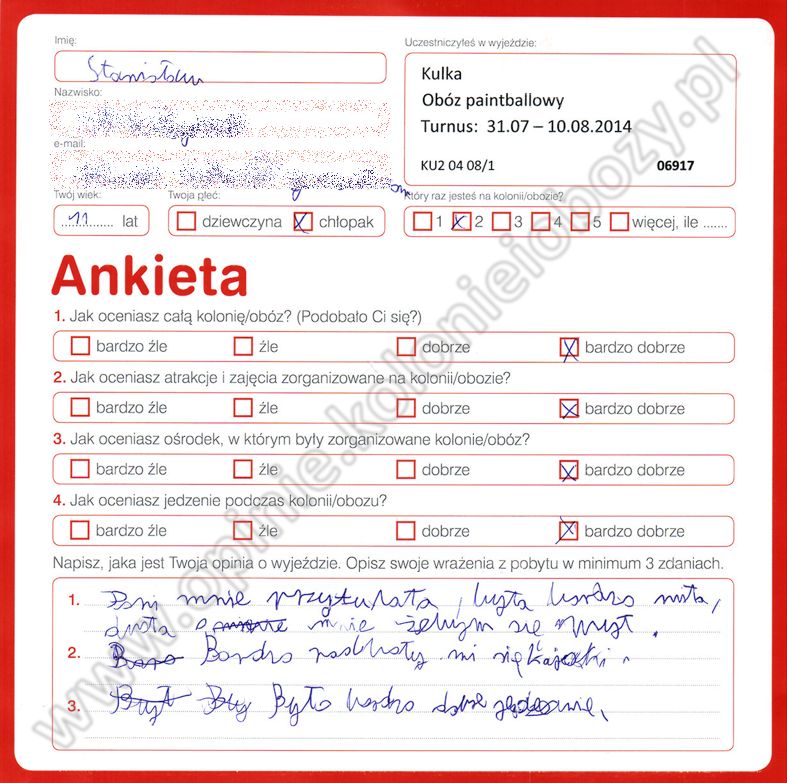 Imię:
Stanisław
Nazwisko:
e-mail:
Twój wiek:
11 lat
Twoja płeć:
dziewczyna chłopak
Uczestniczyłeś w wyjeździe:
Kulka
Obóz paintballowy
Turnus: 31.07 – 10.08.2014
KU2 04 08/1 06917
Który raz jesteś na kolonii/obozie?
1 2 3 4 5 więcej, ile .......
Ankieta
1. Jak oceniasz całą kolonię/obóz? (Podobało Ci się?)
bardzo źle źle dobrze bardzo dobrze
2. Jak oceniasz atrakcje i zajęcia zorganizowane na kolonii/obozie?
bardzo źle źle dobrze bardzo dobrze
3. Jak oceniasz ośrodek, w którym były zorganizowane kolonie/obóz?
bardzo źle źle dobrze bardzo dobrze
4. Jak oceniasz jedzenie podczas kolonii/obozu?
bardzo źle źle dobrze bardzo dobrze
Napisz, jaka jest Twoja opinia o wyjeździe. Opisz swoje wrażenia z pobytu w minimum 3 zdaniach.
1. Pani mnie przytulała, była bardzo miła,
dbała o mnie żebym się mył.
2. Bardzo podobały mi się
3. Było bardzo dobre jedzenie.
www.opinie.kolonieiobozy.pl